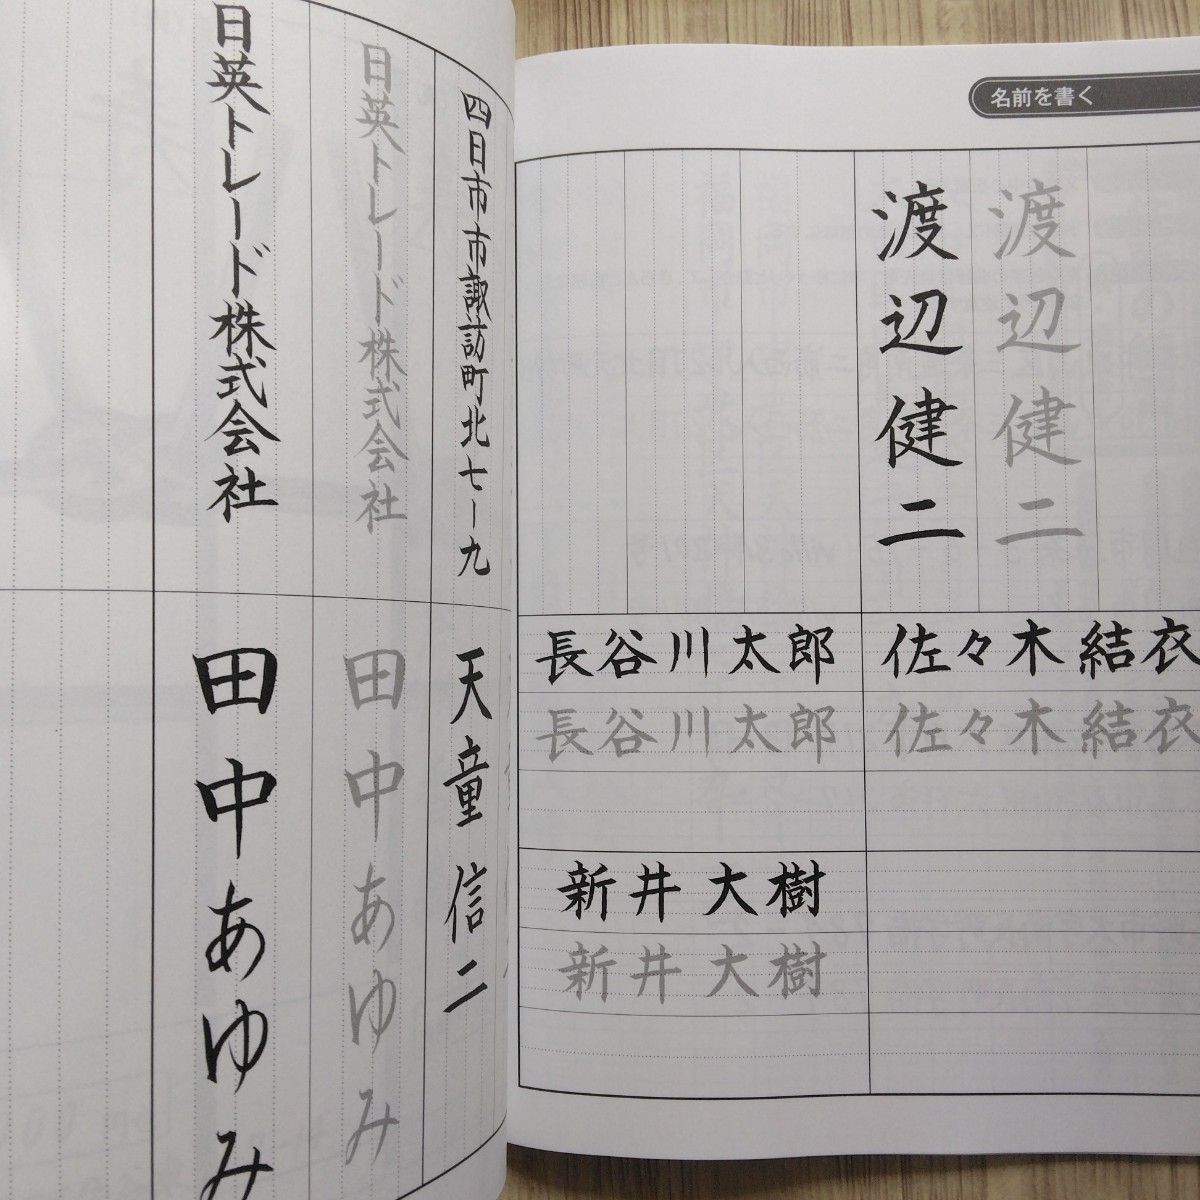 名前を書く
渡辺健二
渡辺健二
佐々木結衣
佐々木結衣
長谷川太郎
長谷川太郎
新井大樹
新井大樹
四日市市諏訪町北七ー九
日英トレード株式会社
日英トレード株式会社
天童信二
田中あゆみ
田中あゆみ